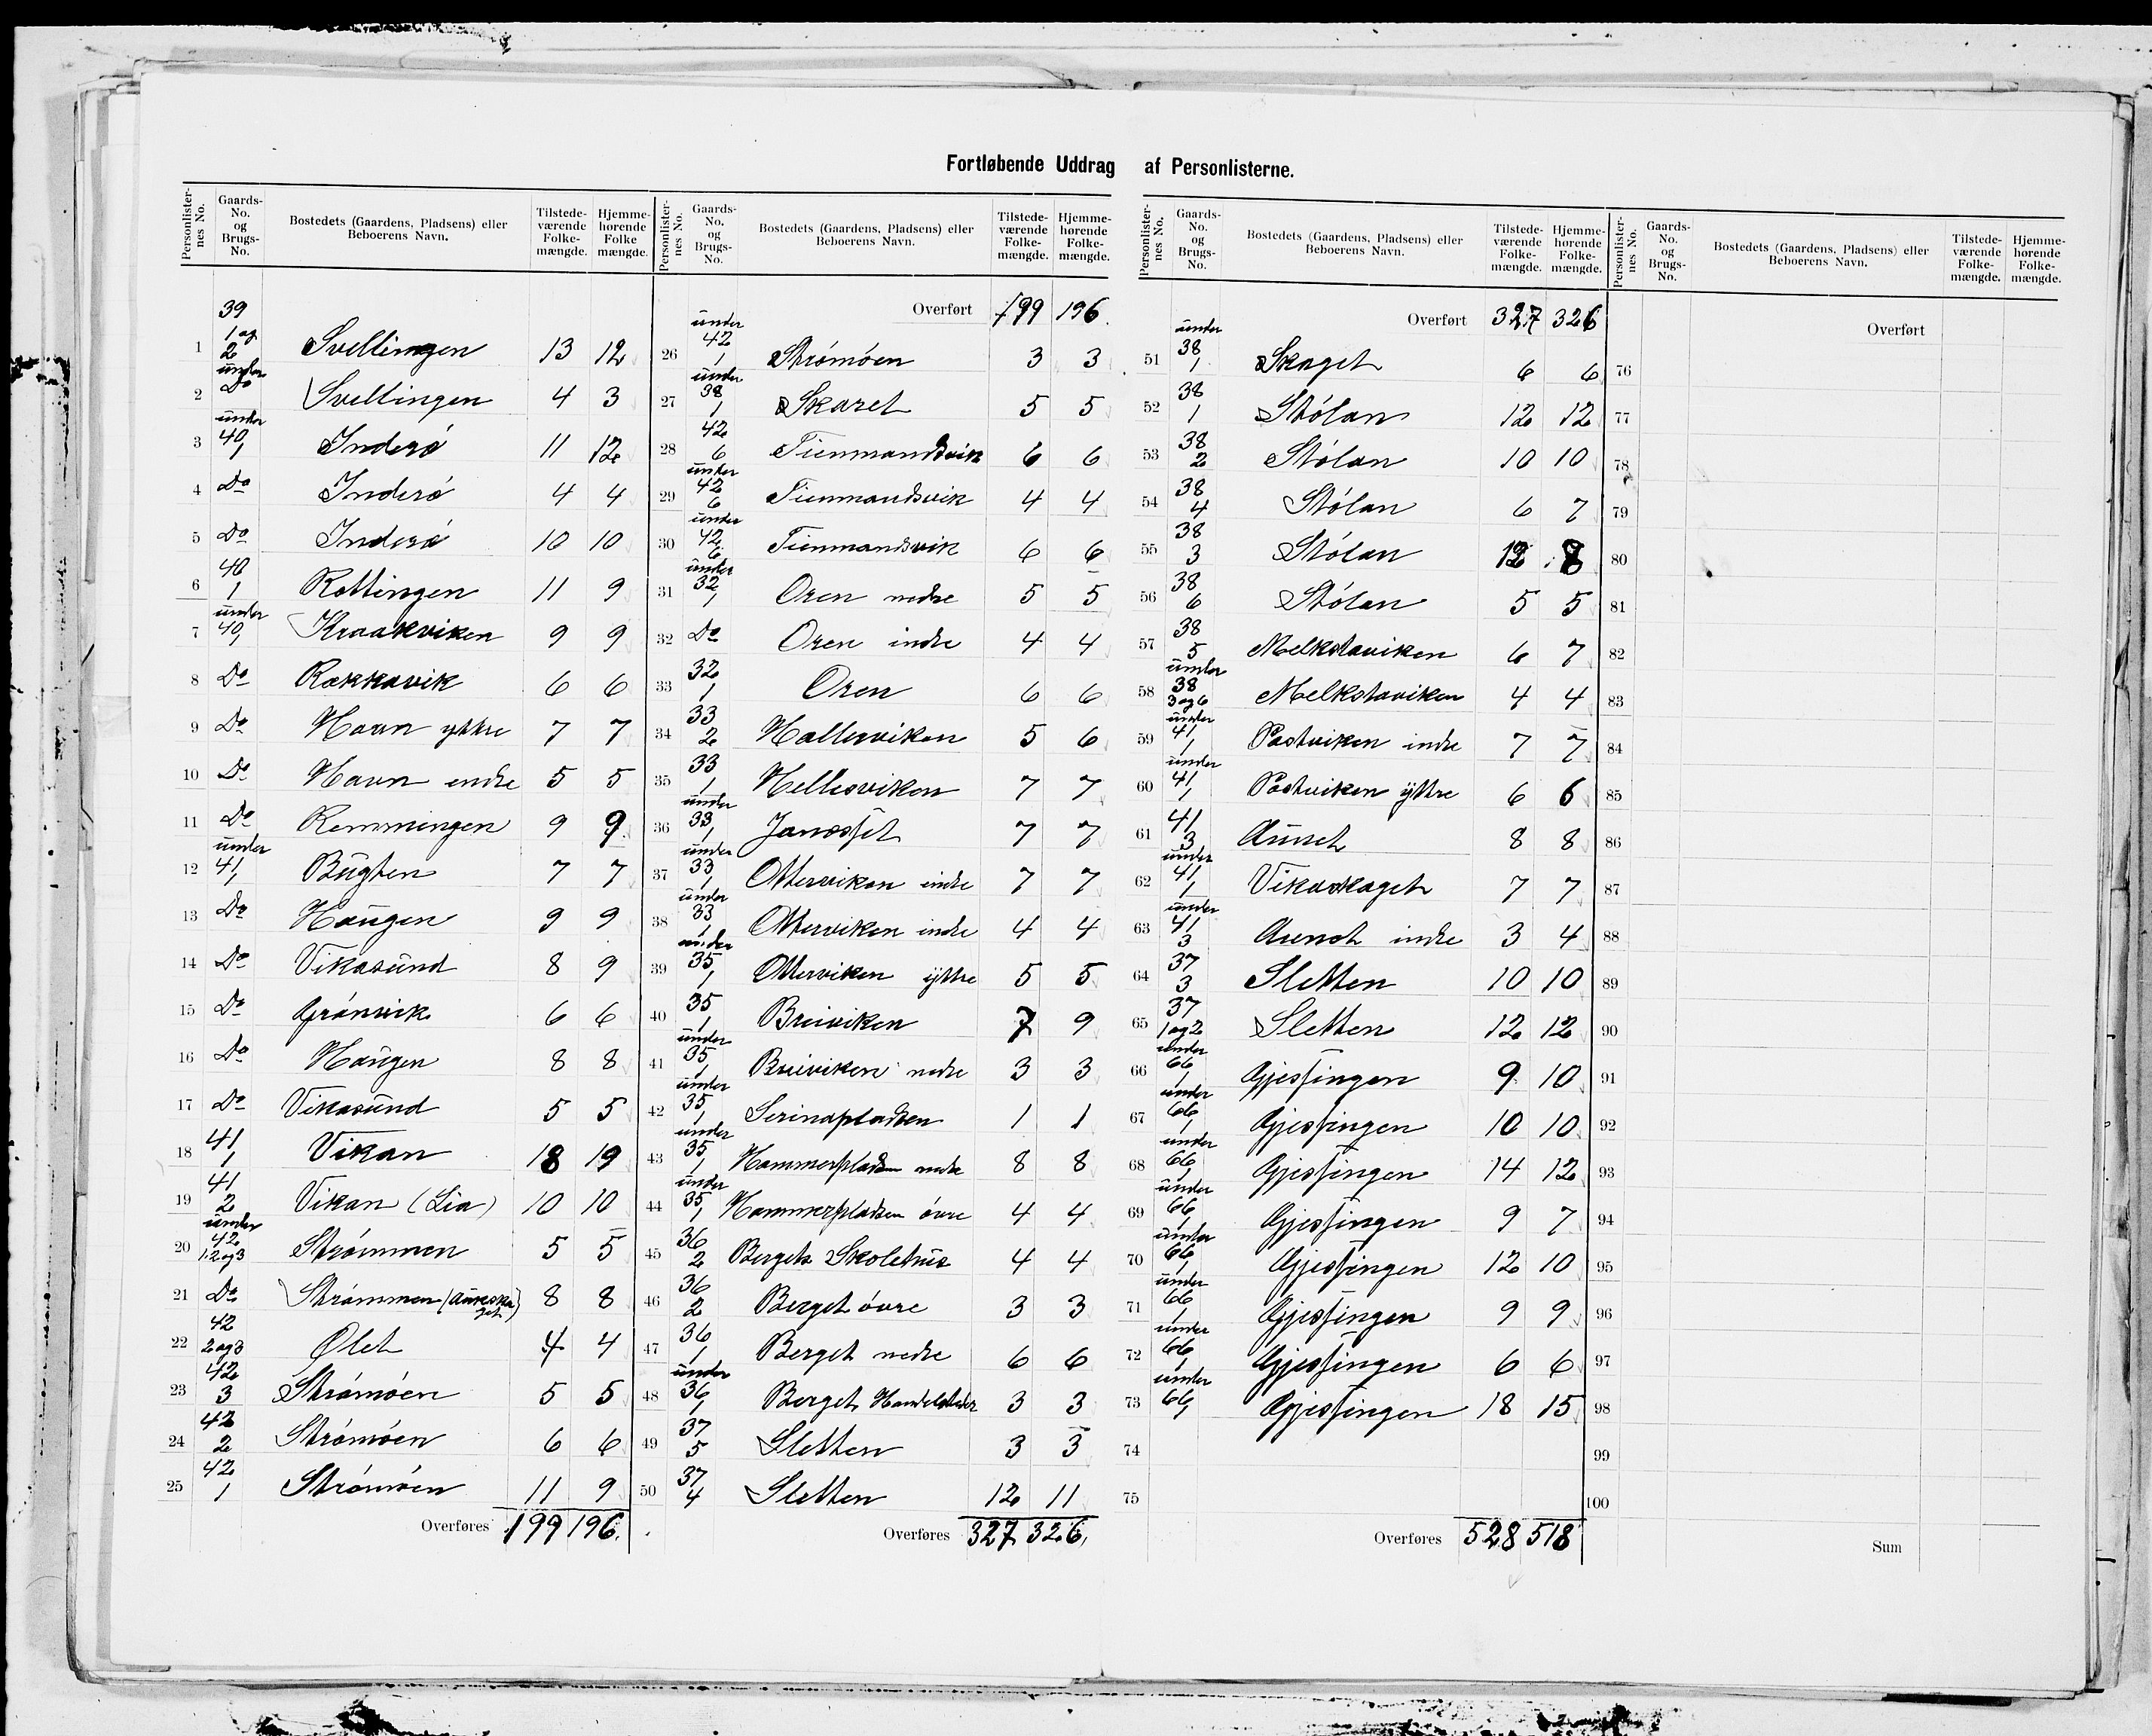 Fortløbende Uddrag af Personlisterne.
Personlisternes No. Gaards-No. og Brugs-No. Bostedets (Gaardens, Pladsens) eller Beboerens Navn. Tilstedeværende Folkemængde. Hjemmehørende Folkemængde.
1 39 1 og 2 Svellingen 13 12
2 under Do Svellingen 4 3
3 under 40, 1 Inderö 11 12
4 Do Inderö 4 4
5 Do Inderö 10 10
6 40 1 Rottingen 11 9
7 under 40, 1 Kraakviken 9 9
8 Do Rakkavik 6 6
9 Do Havn yttre 7 7
10 Do Havn indre 5 5
11 Do Remmingen 9 9
12 under 41, 1 Bügten 7 7
13 Do Haügen 9 9
14 Do Vikasünd 8 9
15 Do Grönvik 6 6
16 Do Haügen 8 8
17 Do Vikasünd 5 5
18 41 1 Vikan 18 19
19 41 2 Vikan (Lia) 10 10
20 under 42 1.2 og 3 Strömmen 5 5
21 Do Strömmen 8 8
22 42 2 og 3 Ølet 4 4
23 42 3 Strömöen 5 5
24 42 2 Strömöen 6 6
25 42 1 Strömöen 11 9
Overføres 199 196.
Personlisternes No. Gaards-No. og Brugs-No. Bostedets (Gaardens, Pladsens) eller Beboerens Navn. Tilstedeværende Folkemængde. Hjemmehørende Folkemængde.
Overført 199 196.
26 under 42 1 Strömöen 3 3
27 under 38 1 Skaret 5 5
28 42 6 Tienmandsvik 6 6
29 under 42 6 Tienmandsvik 4 4
30 under 42 6 Tienmandsvik 6 6
31 under 32 1 Oren nedre 5 5
32 Do Oren indre 4 4
33 32 1 Oren 6 6
34 33 2 Hallesviken 5 6
35 33 1 Hellesviken 7 7
36 under 33 1 7 7
37 under 33 1 Otterviken indre 7 7
38 under 33 1 Otterviken indre 4 4
39 under 35 1 Otterviken yttre 5 5
40 35 1 Breiviken 7 9
41 under 35 1 Breiviken nedre 3 3
42 under 35 1 Serinapladsen 1 1
43 under 35 1 Hammerpladsen nedre 8 8
44 under 35 1 Hammerpladsen övre 4 4
45 36 2 Bergets Skolehüs 4 4
46 36 2 Berget övre 3 3
47 36 1 Berget nedre 6 6
48 under 36 1 Berget Handelssted 3 3
49 37 5 Sletten 3 3
50 37 4 Sletten 12 11
Overføres 327 326,
Personlisternes No. Gaards-No. og Brugs-No. Bostedets (Gaardens, Pladsens) eller Beboerens Navn. Tilstedeværende Folkemængde. Hjemmehørende Folkemængde.
Overført 327 326
51 under 38 1 Skaget 6 6
52 38 1 Stölan 12 12
53 38 2 Stölan 10 10
54 38 4 Stölan 6 7
55 38 3 Stölan 12 8
56 38 6 Stölan 5 5
57 38 5 Melkstaviken 6 7
58 under 38 3 og 6 Melkstaviken 4 4
59 under 41 1 Postviken indre 7 7
60 under 41 1 Postviken yttre 6 6
61 41 3 Aünet 8 8
62 under 41 1 Vikaskaget 7 7
63 under 41 3 Aunet indre 3 4
64 37 3 Sletten 10 10
65 37 1 og 2 Sletten 12 12
66 under 66 1 Gjessingen 9 10
67 under 66 1 Gjessingen 10 10
68 under 66 1 Gjessingen 14 12
69 under 66 1 Gjessingen 9 7
70 under 66 1 Gjessingen 12 10
71 under 66 1 Gjessingen 9 9
72 under 66 1 Gjessingen 6 6
73 under 66, 1 Gjessingen 18 15
74
75
Overføres 528 518
Personlisternes No. Gaards-No. og Brugs-No. Bostedets (Gaardens, Pladsens) eller Beboerens Navn. Tilstedeværende Folkemængde. Hjemmehørende Folkemængde.
Overført
76
77
78
79
80
81
82
83
84
85
86
87
88
89
90
91
92
93
94
95
96
97
98
99
100
Sum